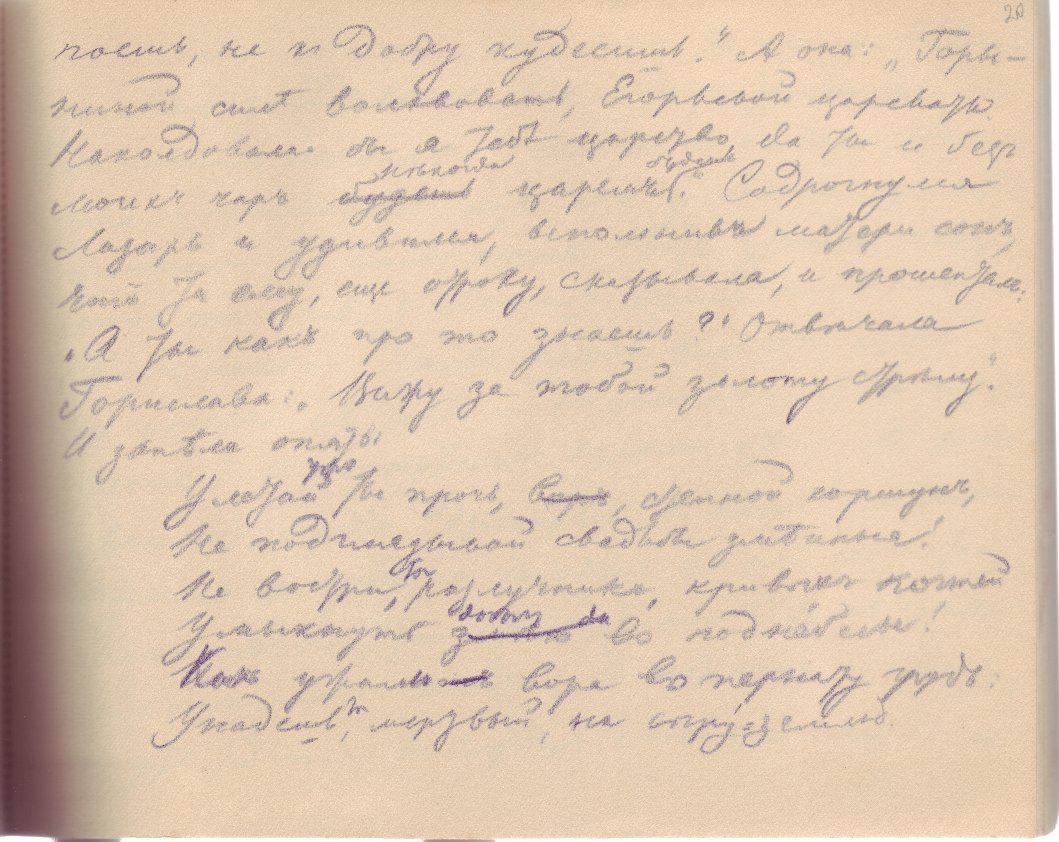 20
поешь, не к добру кудесишь." А она: „Горы-
ниной силѣ волхвовать, Егорьевой царевать.
Наколдовала бы я тебѣ царство, да ты и безъ
моихъ чаръ будешь нѣкогда царемъ будешь." Содрогнулся
Лазарь и удивился, вспомнивъ матери сонъ,
чтó та ему, еще отроку, сказывала, и прошепталъ:
„А ты какъ про то знаешь?" Отвѣчала
Горислава: „Вижу за тобой золоту стрѣлу."
И запѣла опять:
Улетай ты прочь, воръ, степной коршунъ,
Не подглядывай свадьбы змѣиныя!
Не востри ты, разлучникъ, кривыхъ когтей
Умыкнуть во поднебесье!
Какъ ужалю вора во пернату грудь:
Упадешь, мертвый, на сыру-землю.